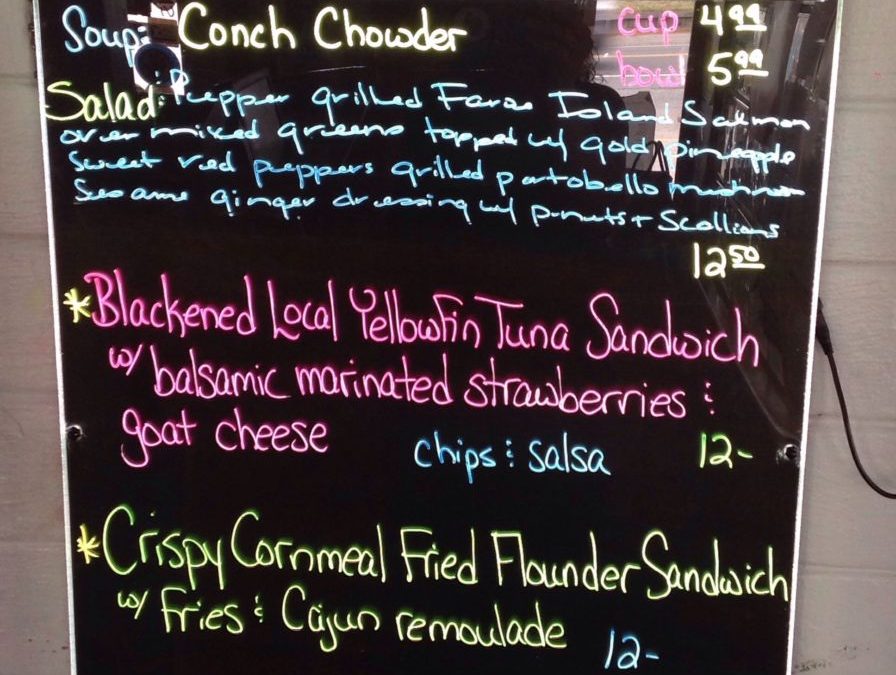 Soup: Conch Chowder cup 4.99
bowl 5.99
Salad: Pepper grilled Faroe Island Salmon
over mixed greens topped w/ gold pineapple
sweet red peppers grilled portobello mushroom
Sesame ginger dressing w/ p-nuts + Scallions
12.50
*Blackened Local Yellowfin Tuna Sandwich
w/ balsamic marinated strawberries &
goat cheese chips & salsa 12-
*Crispy Cornmeal Fried Flounder Sandwich
w/ Fries & Cajun remoulade 12-